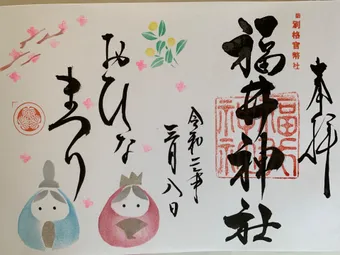 奉拝
旧別格官幣社
福井神社
令和二年
三月八日
おひな
まつり